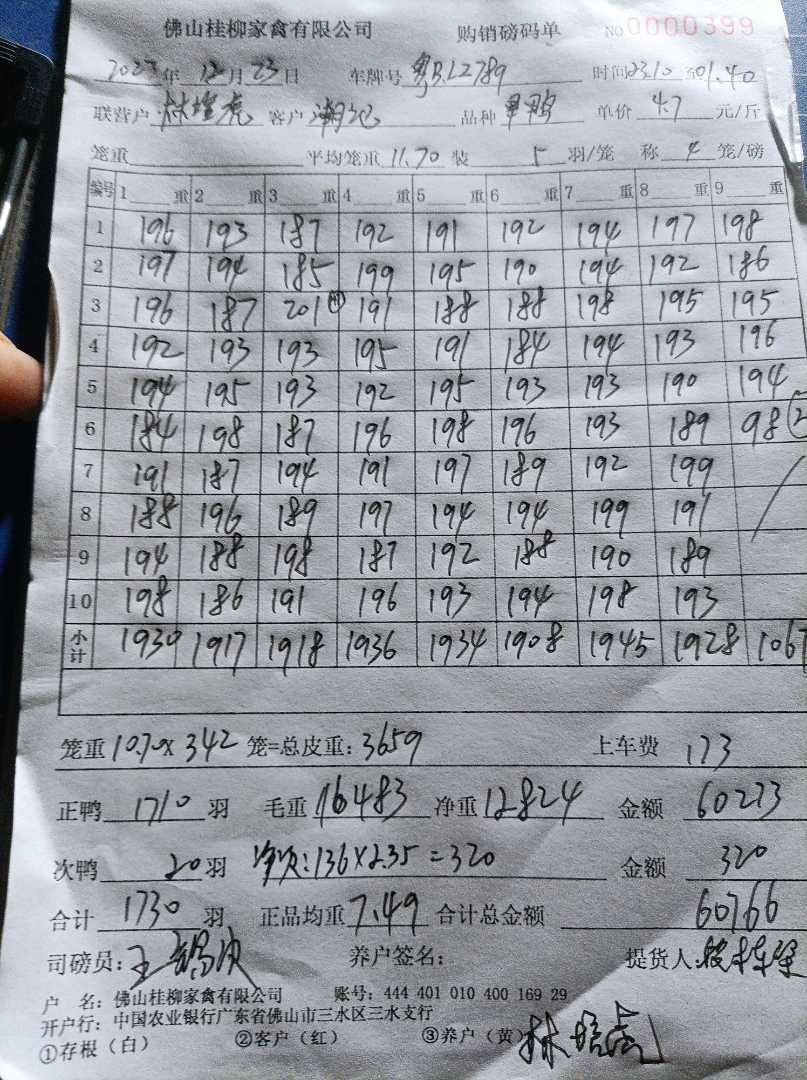 佛山桂柳家禽有限公司 购销磅码单 NO 0000399
2023年 12月 23日 车牌号 粤BL2789 时间 23.10 至 01.40
联营户 林培虎 客户 潮记 品种 单价 4.7 元/斤
笼重 平均笼重 11.70 装 5 羽/笼 称 4 笼/磅
编号 1 重 2 重 3 重 4 重 5 重 6 重 7 重 8 重 9 重
1 196 193 187 192 191 192 194 197 198
2 197 194 185 199 195 190 194 192 186
3 196 187 201 191 188 188 198 195 195
4 192 193 193 195 191 184 194 193 196
5 194 195 193 192 195 193 193 190 194
6 184 198 187 196 198 196 193 189 98 ②
7 191 187 194 191 197 189 192 199
8 188 196 189 197 194 194 199 191
9 194 188 198 187 192 188 190 189
10 198 186 191 196 193 194 198 193
小计 1930 1917 1918 1936 1934 1908 1945 1928 1067
笼重 10.70 x 342 笼=总皮重: 3659 上车费 173
正鸭 1710 羽 毛重 16483 净重 12824 金额 60273
次鸭 20 羽 : 136 x 2.35 = 320 金额 320
合计 1730 羽 正品均重 7.49 合计总金额 60766
司磅员: 王 养户签名: 提货人:
户 名: 佛山桂柳家禽有限公司 账号: 444 401 010 400 169 29
开户行: 中国农业银行广东省佛山市三水区三水支行
①存根（白） ②客户（红） ③养户（黄） 林培虎